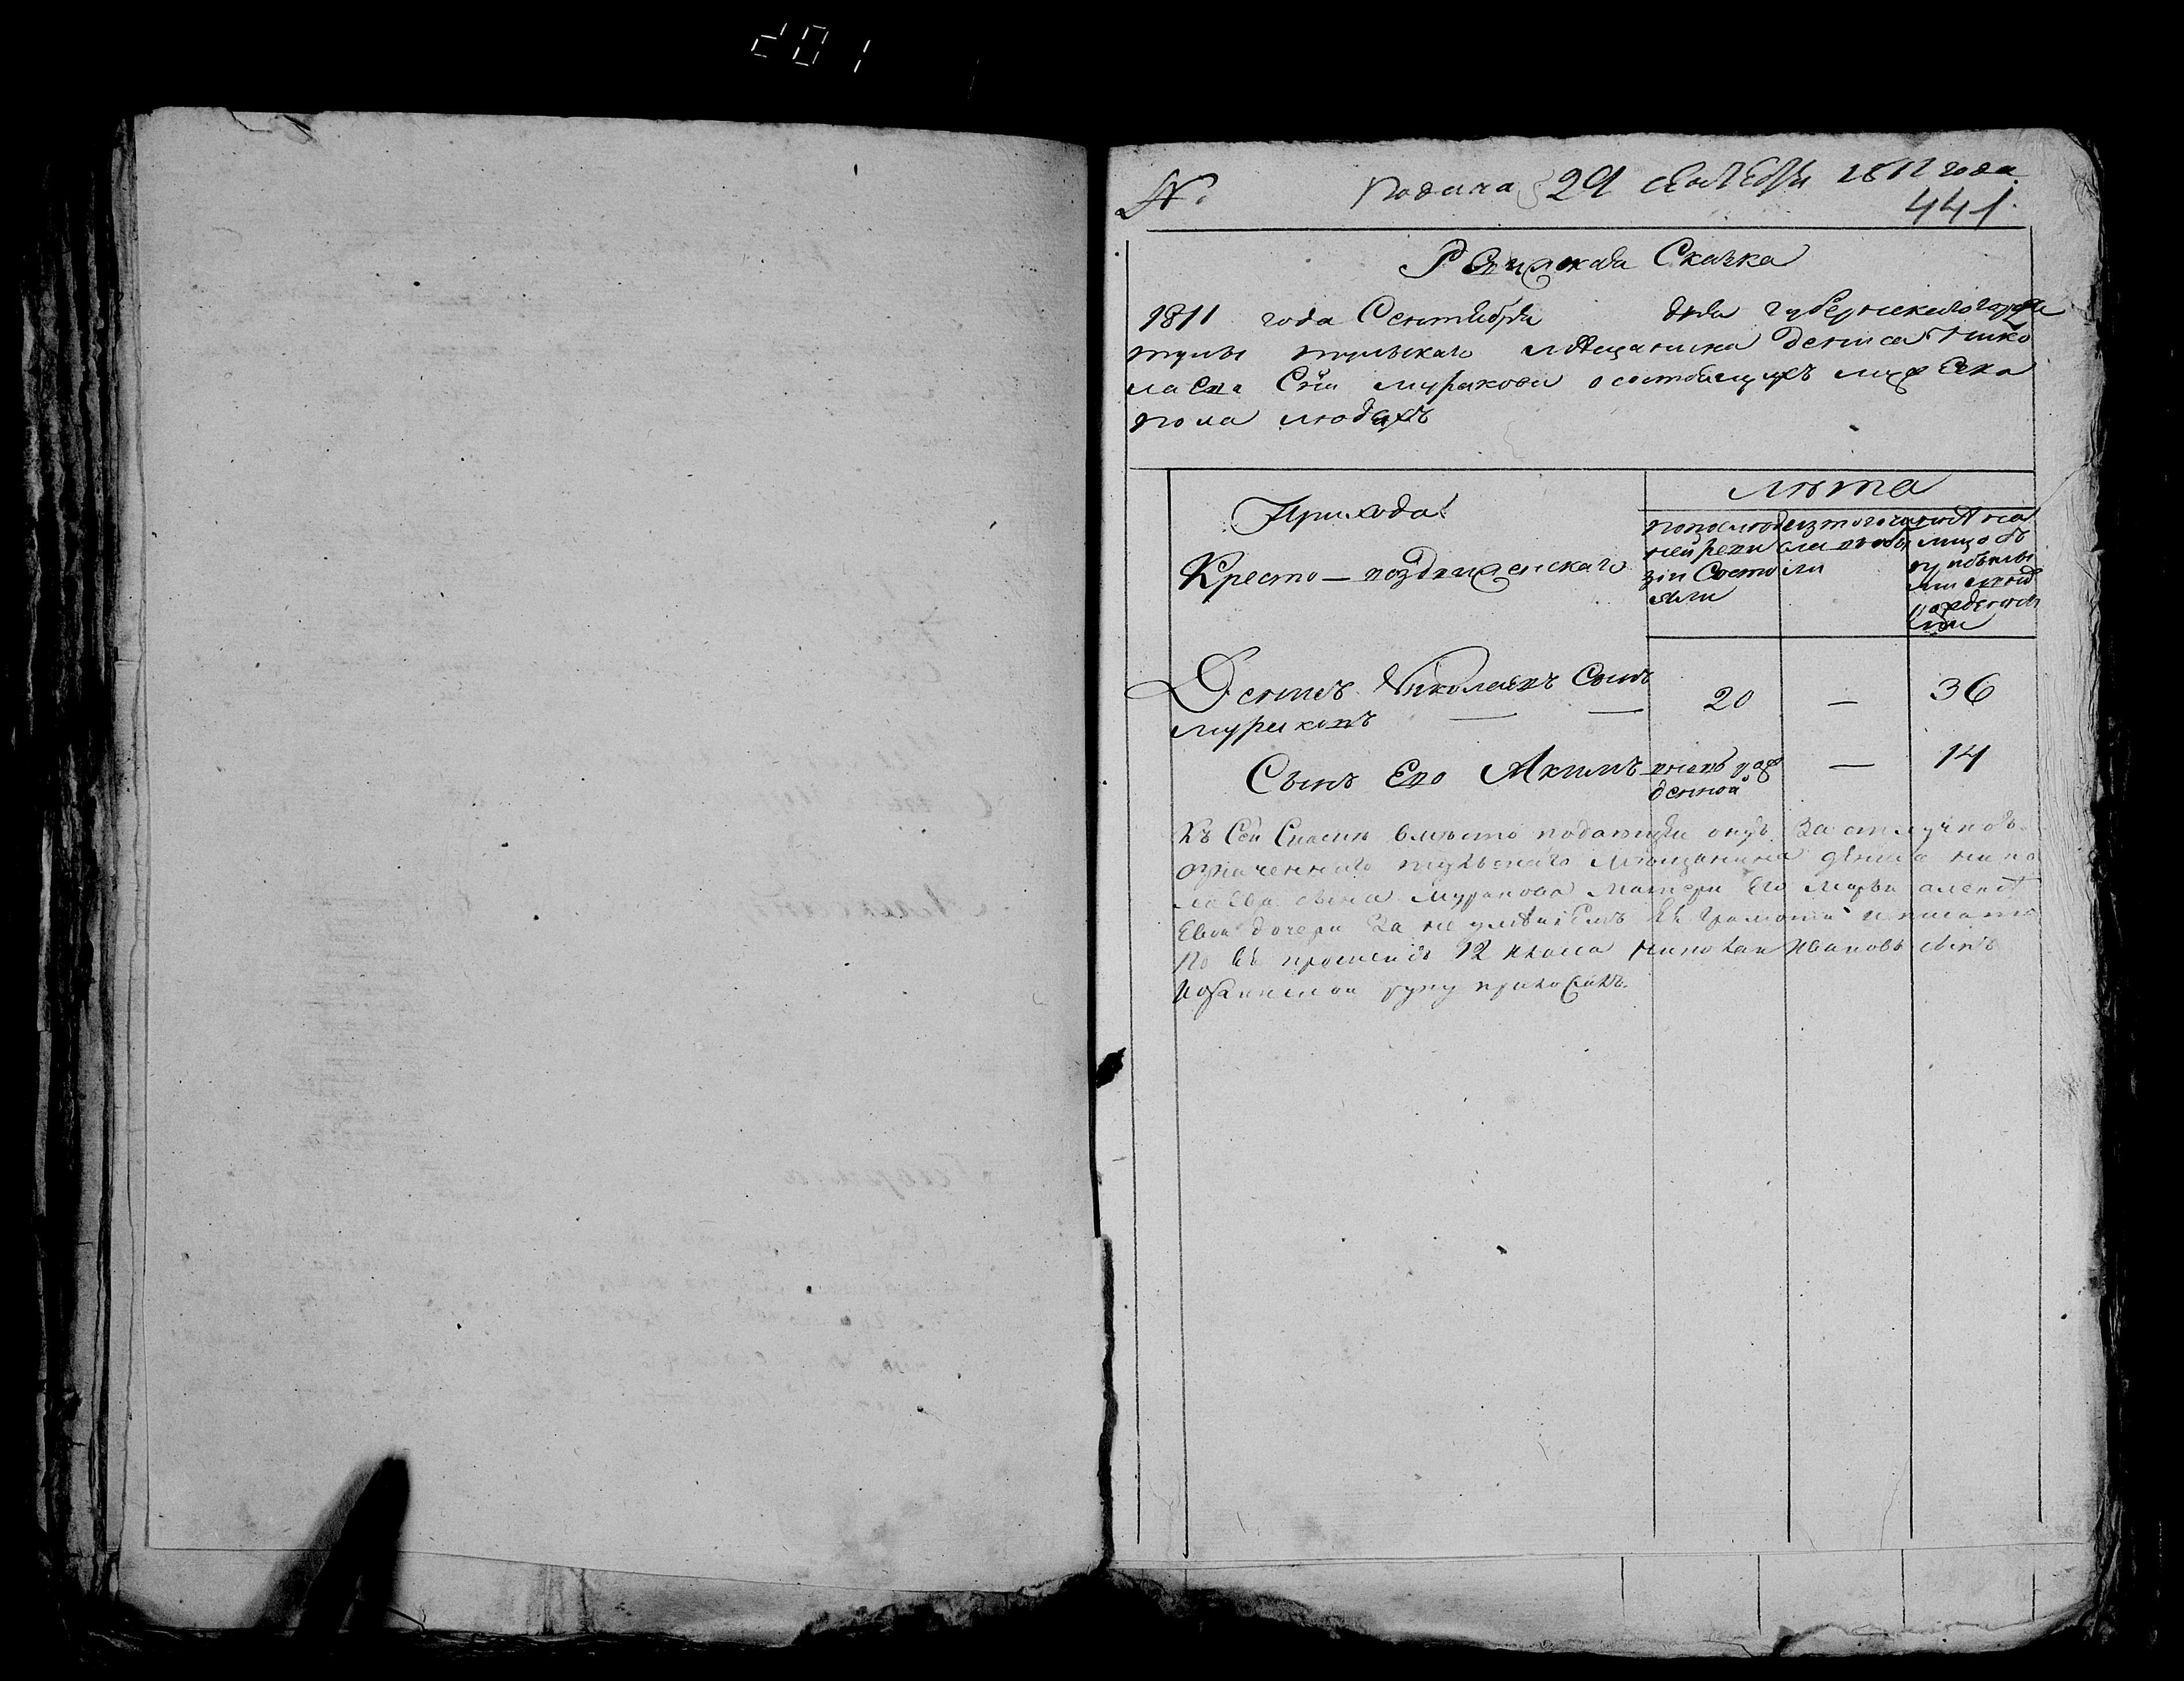 201
№ Подана 29 сентебря 1811 года
441
Ревижская Сказка
1811 года Сентября дня губернскаго города
тулы тульскаго мѣщанина дениса нико
лаева Сна муракова о состоящихъ мужеска
пола людяхъ
Прихода
Кресто-воздвиженскаго
Лѣта
по последней ревизіи Состояли
изъ того числа выбыли
нынѣ на лицо
Денисъ Николаевъ Сынъ 20 — 36
мураковъ — —
Сынъ Ево Акимъ внепь рож — 14
денной
Къ Сей Скаски вместо подателя онои За отлучкою
означеннаго тульскаго мѣщанина дениса нико
лаева сына Муракова Матери Его Марьи алексѣ
Евой дочери За не умѣниемъ Ея грамоти и писать
По Ея прошенію 12 класса Николаи Ивановъ сынъ
руку приложилъ